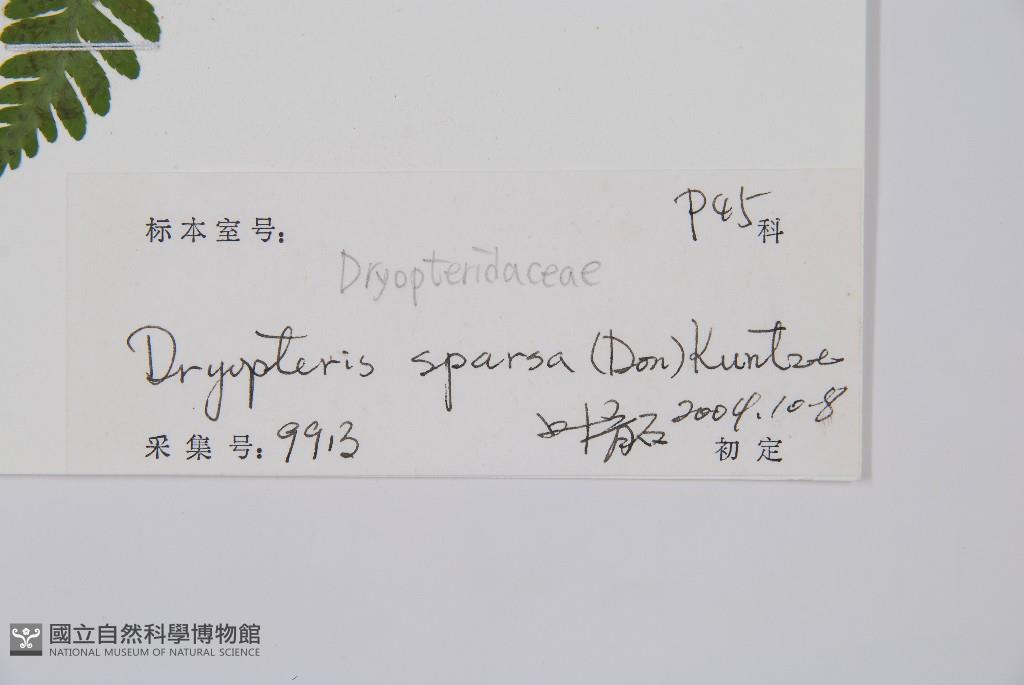 标本室号：
P45科
Dryopteridaceae
Dryopteris sparsa (Don) Kuntze
采集号：9913
2004.10.8
初定
國立自然科學博物館
NATIONAL MUSEUM OF NATURAL SCIENCE